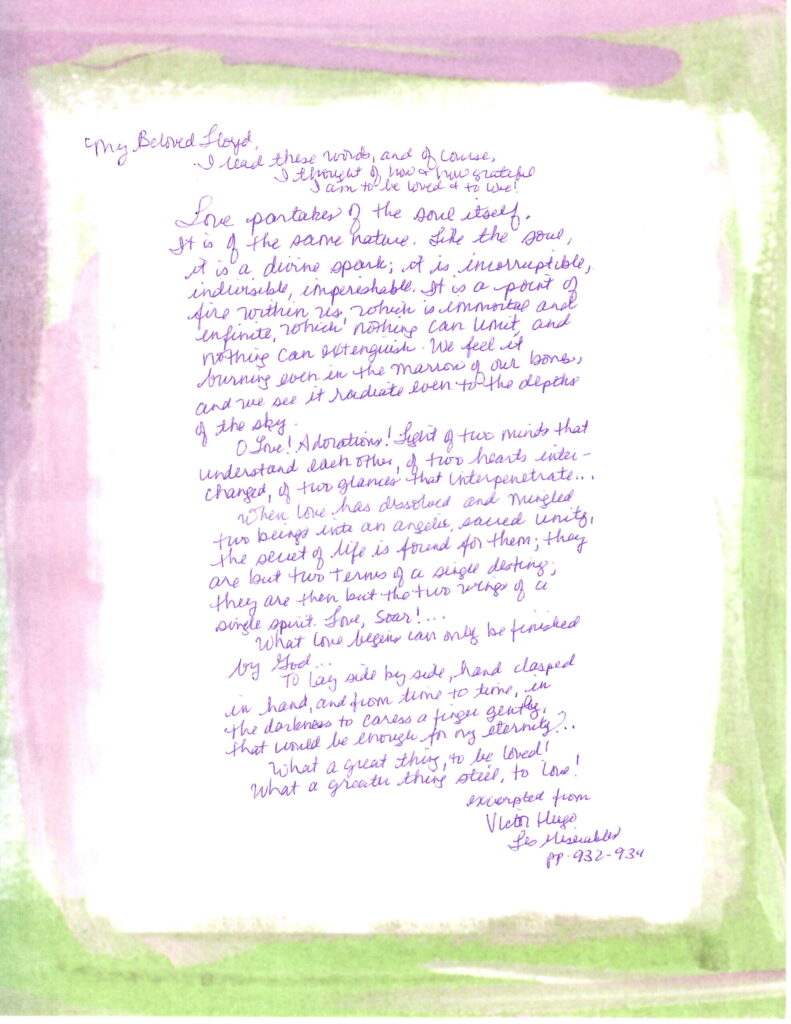 My Beloved Lloyd,
I read these words, and of course,
I thought of how & how grateful
I am to be loved & to love!
Love partakes of the soul itself.
It is of the same nature. Like the soul,
it is a divine spark; it is incorruptible,
indivisible, imperishable. It is a point of
fire within us, which is immortal and
infinite, which nothing can limit, and
nothing can extinguish. We feel it
burning even in the marrow of our bones,
and we see it radiate even to the depths
of the sky.
O Love! Adorations! Light of two minds that
understand each other, of two hearts inter-
changed, of two glances that interpenetrate...
When love has dissolved and mingled
two beings into an angelic, sacred unity,
the secret of life is found for them; they
are but two terms of a single destiny;
they are then but the two wings of a
single spirit. Love, Soar!...
What love begins can only be finished
by God...
To lay side by side, hand clasped
in hand, and from time to time, in
the darkness to caress a finger gently,
that would be enough for my eternity?..
What a great thing, to be loved!
What a greater thing still, to love!
excerpted from
Victor Hugo
Les Miserables
pp. 932-934